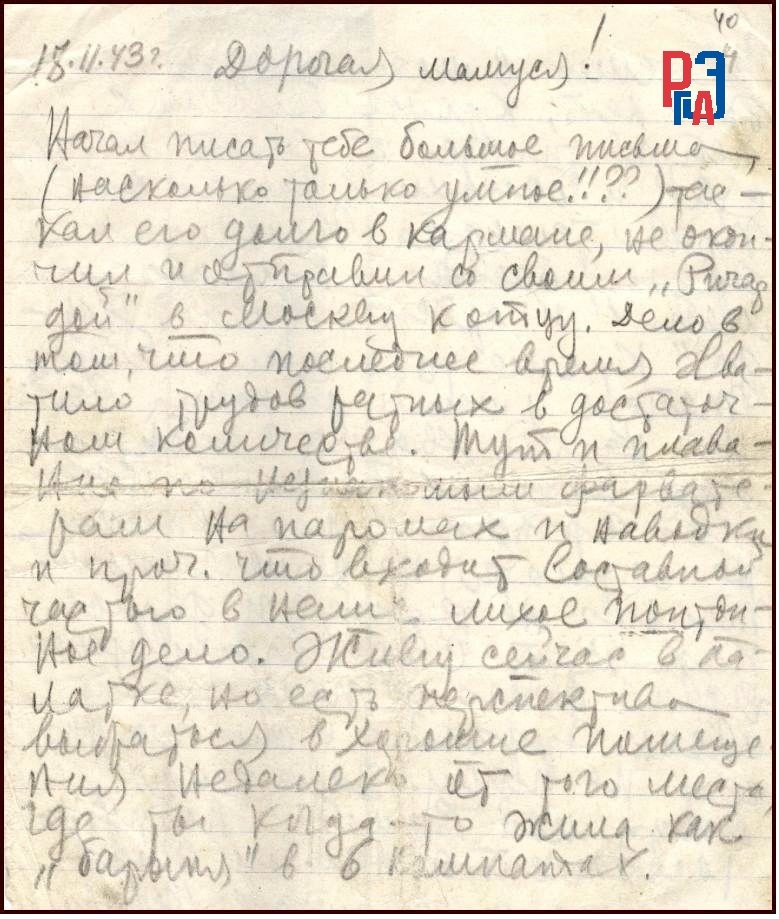 40
18.II.43г. Дорогая мамуся!
РГАЭ
Начал писать тебе большое письмо
(насколько только умное!!??) тас-
кал его долго в кармане, не окон-
чил и отправил со своим „Ричар
дой" в Москву к отцу. Дело в
том, что последнее время хва-
тило трудов ратных в достаточ-
ном количестве. Тут и плава-
ния по незнакомым фарвате-
рам на паромах и наводки
и проч. что входит составной
частью в наше лихое понтон-
ное дело. Живу сейчас в па-
латке, но есть перспектива
выбраться в хорошие помеще
ния недалеко от того места,
где ты когда-то жила как
„барыня" в 6 комнатах.